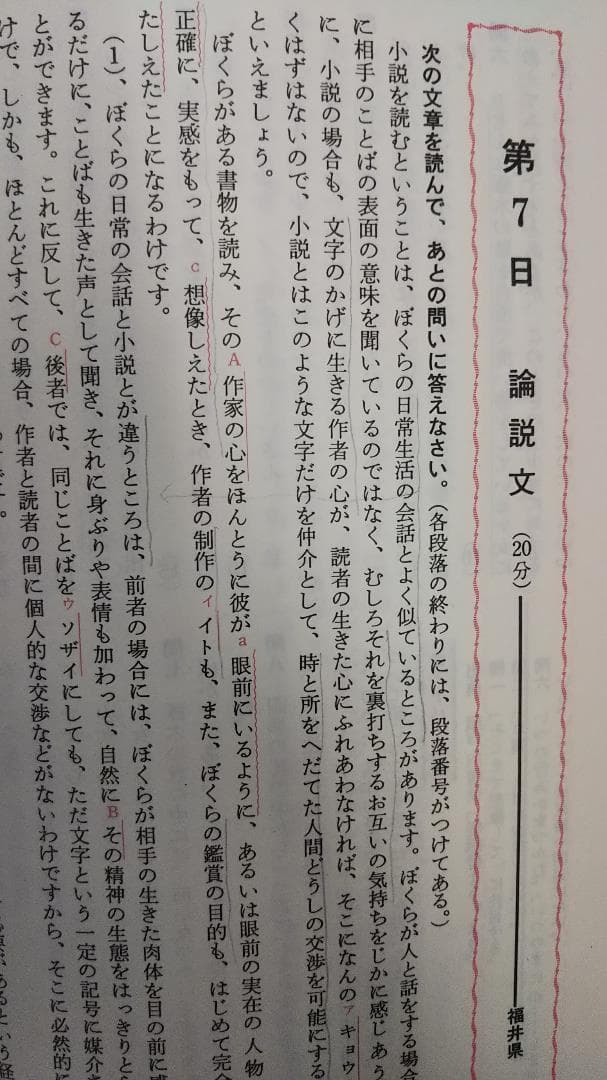 第7日 論説文 (20分) 福井県
次の文章を読んで、あとの問いに答えなさい。(各段落の終わりには、段落番号がつけてある。)
小説を読むということは、ぼくらの日常生活の会話とよく似ているところがあります。ぼくらが人と話をする場合
に相手のことばの表面の意味を聞いているのではなく、むしろそれを裏打ちするお互いの気持ちをじかに感じあう
に、小説の場合も、文字のかげに生きる作者の心が、読者の生きた心にふれあわなければ、そこになんのァキョウ
くはずはないので、小説とはこのような文字だけを仲介として、時と所をへだてた人間どうしの交渉を可能にする
といえましょう。
ぼくらがある書物を読み、そのA作家の心をほんとうに彼がa眼前にいるように、あるいは眼前の実在の人物
正確に、実感をもって、c想像しえたとき、作者の制作のィイトも、また、ぼくらの鑑賞の目的も、はじめて完全
たしえたことになるわけです。
(1)、ぼくらの日常の会話と小説とが違うところは、前者の場合には、ぼくらが相手の生きた肉体を目の前に感
るだけに、ことばも生きた声として聞き、それに身ぶりや表情も加わって、自然にBその精神の生態をはっきりと
とができます。これに反して、C後者では、同じことばをゥソザイにしても、ただ文字という一定の記号に媒介さ
けで、しかも、ほとんどすべての場合、作者と読者の間に個人的な交渉などがないわけですから、そこに必然的に